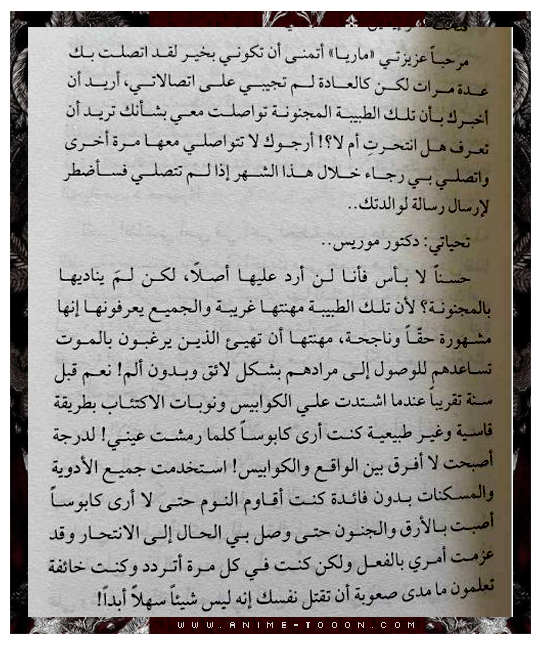 مرحباً عزيزتي «ماريا» أتمنى أن تكوني بخير لقد اتصلت بك
عدة مرات لكن كالعادة لم تجيبي على اتصالاتي، أريد أن
أخبرك بأن تلك الطبيبة المجنونة تواصلت معي بشأنك تريد أن
تعرف هل انتحرتِ أم لا؟! أرجوك لا تتواصلي معها مرة أخرى
واتصلي بي رجاء خلال هذا الشهر إذا لم تتصلي فسأضطر
لإرسال رسالة لوالدتك..
تحياتي: دكتور موريس..
حسناً لا بأس فأنا لن أرد عليها أصلاً، لكن لمَ يناديها
بالمجنونة؟ لأن تلك الطبيبة مهنتها غريبة والجميع يعرفونها إنها
مشهورة حقّاً وناجحة، مهنتها أن تهيئ الذين يرغبون بالموت
تساعدهم للوصول إلى مرادهم بشكل لائق وبدون ألم! نعم قبل
سنة تقريباً عندما اشتدت علي الكوابيس ونوبات الاكتئاب بطريقة
قاسية وغير طبيعية كنت أرى كابوساً كلما رمشت عيني! لدرجة
أصبحت لا أفرق بين الواقع والكوابيس! استخدمت جميع الأدوية
والمسكنات بدون فائدة كنت أقاوم النوم حتى لا أرى كابوساً
أصبت بالأرق والجنون حتى وصل بي الحال إلى الانتحار وقد
عزمت أمري بالفعل ولكن كنت في كل مرة أتردد وكنت خائفة
تعلمون ما مدى صعوبة أن تقتل نفسك إنه ليس شيئاً سهلاً أبداً!
WWW.ANIME-TOOON.COM